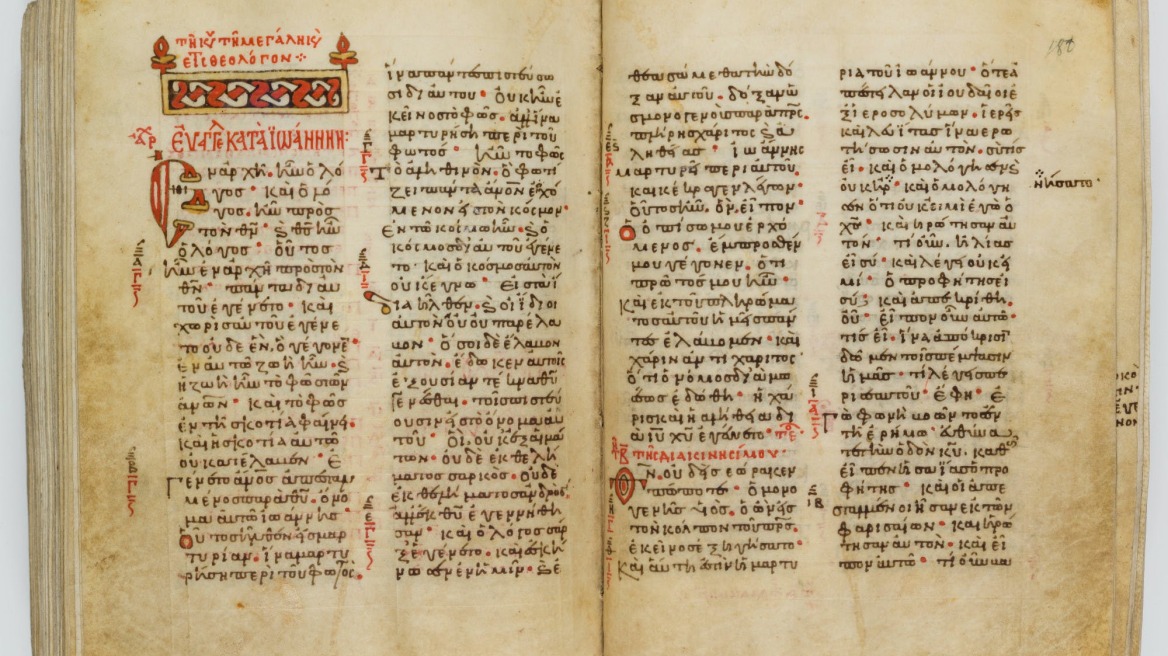 τῆ κυ τῆ μεγάλη κυ
Εὐαγγε κατὰ ϊωάννην:
Ἐν ἀρχῆ. ἦν ὁ λό
γος · καὶ ὁ λό
γος. ἦν πρὸς
τὸν θν · ϗ θς ἦν
ὁ λόγος · οὗτος
ἦν ἐν ἀρχῆ πρὸς τὸν
θν · πάντα δι αὐ
τοῦ ἐγένετο · καὶ
χωρὶς αὐτοῦ ἐγένε
το οὐδὲ ἕν. ὃ γέγονεν
ἐν αὐτῶ ζωὴ ἦν · ϗ
ἡ ζωὴ ἦν τὸ φῶς τῶν
ανων · καὶ τὸ φῶς
ἐν τῆ σκοτία φαίνει ·
καὶ ἡ σκοτία αὐτὸ
οὐ κατέλαβεν · Ἐ
γένετο ανος ἀπεσταλ
μένος παρὰ θυ · ὄνο
μα αὐτῶ ἰωάννης ·
Οὗτος ἦλθεν εἰς μαρ
τυρίαν · ἵνα μαρτυ
ρήση περὶ τοῦ φωτός ·
ἵνα πάντες πιστεύσω
σι δι αὐτοῦ · οὐκ ἦν ἐ
κεῖνος τὸ φῶς. ἀλλ ἵνα
μαρτυρήση περὶ τοῦ
φωτός · ἦν τὸ φῶς
τὸ ἀληθινόν. ὃ φωτί
ζει πάντα ανον ἐρχό
μενον εἰς τὸν κόσμον ·
Ἐν τῶ κόσμω ἦν · ϗ ὁ
κόσμος δι αὐτοῦ ἐγένε
το · καὶ ὁ κόσμος αὐτὸν
οὐκ ἔγνω · Εἰς τὰ ἴ
δια ἦλθεν. ϗ οἱ ἴδιοι
αὐτὸν οὐ παρέλα
βον · ὅσοι δὲ ἔλαβον
αὐτὸν. ἔδωκεν αὐτοῖς
ἐξουσίαν τέκνα θυ
γενέσθαι · τοῖς πιστεύ
ουσιν εἰς τὸ ὄνομα αὐ
τοῦ · οἳ οὐκ ἐξ αἱμά
των · οὐδὲ ἐκ θελή
ματος σαρκὸς · οὐδὲ
ἐκ θελήματος ἀνδρὸς ·
ἀλλ ἐκ θυ ἐγεννήθη
σαν · καὶ ὁ λόγος σὰρ
ξ ἐγένετο · καὶ ἐσκή
νωσεν ἐν ἡμῖν · ϗ ἐ
θεασάμεθα τὴν δό
ξαν αὐτοῦ · δόξαν ὡ
ς μονογενοῦς παρὰ πρς.
πλήρης χάριτος ϗ ἀ
ληθείας · ἰωάννης
μαρτυρεῖ περὶ αὐτοῦ ·
καὶ κέκραγεν λέγων ·
οὗτος ἦν. ὃν εἶπον ·
Ὁ ὀπίσω μου ἐρχό
μενος. ἔμπροσθέν
μου γέγονεν. ὅτι
πρῶτός μου ἦν ·
Καὶ ἐκ τοῦ πληρώμα
τος αὐτοῦ ἡμεῖς πάν
τες ἐλάβομεν · καὶ
χάριν ἀντὶ χάριτος ·
ὅτι ὁ νόμος διὰ μω
σέως ἐδόθη · ἡ χά
ρις καὶ ἡ ἀλήθεια δι
ὰ ιυ χυ ἐγένετο · τε
τῆ β τῆς διακινησίμου ·
Θν. οὐδεὶς ἑώρακεν
πώποτε · ὁ μονο
γενὴς υιος. ὁ ὢν εἰς
τὸν κόλπον τοῦ πρς.
ἐκεῖνος ἐξηγήσατο ·
Καὶ αὕτη ἐστὶν ἡ μαρτυ
ρία τοῦ ἰωάννου · ὅτε ἀ
πέστειλαν οἱ ἰουδαῖοι ἐ
ξ ἱεροσολύμων. ἱερεῖς
καὶ λευίτας ἵνα ἐρω
τήσωσιν αὐτόν. σὺ τίς
εἶ · καὶ ὡμολόγησεν ϗ
οὐκ ἠρν · καὶ ὡμολόγη
σεν ὅτι οὐκ εἰμὶ ἐγὼ ὁ
χς · καὶ ἠρώτησαν αὐ
τόν · τί οὖν. ἡλίας
εἶ σύ · καὶ λέγει οὐκ εἰ
μί · ὁ προφήτης εἶ
σύ · καὶ ἀπεκρίθη.
οὔ · εἶπον οὖν αὐτῶ ·
τίς εἶ. ἵνα ἀπόκρισιν
δῶμεν τοῖς πέμψασιν
ἡμᾶς · τί λέγεις πε
ρὶ σεαυτοῦ · ἔφη · ἐ
γὼ φωνὴ βοῶντος ἐν
τῆ ἐρήμω · εὐθύνα
τε τὴν ὁδὸν κυ. καθὼς
εἶπεν ἡσαΐας ὁ προ
φήτης · καὶ οἱ ἀπε
σταλμένοι ἦσαν ἐκ τῶν
φαρισαίων · καὶ ἠρώ
τησαν αὐτὸν · καὶ εἶ
πον αὐτῶ · τί οὖν βα
νήσατο ·